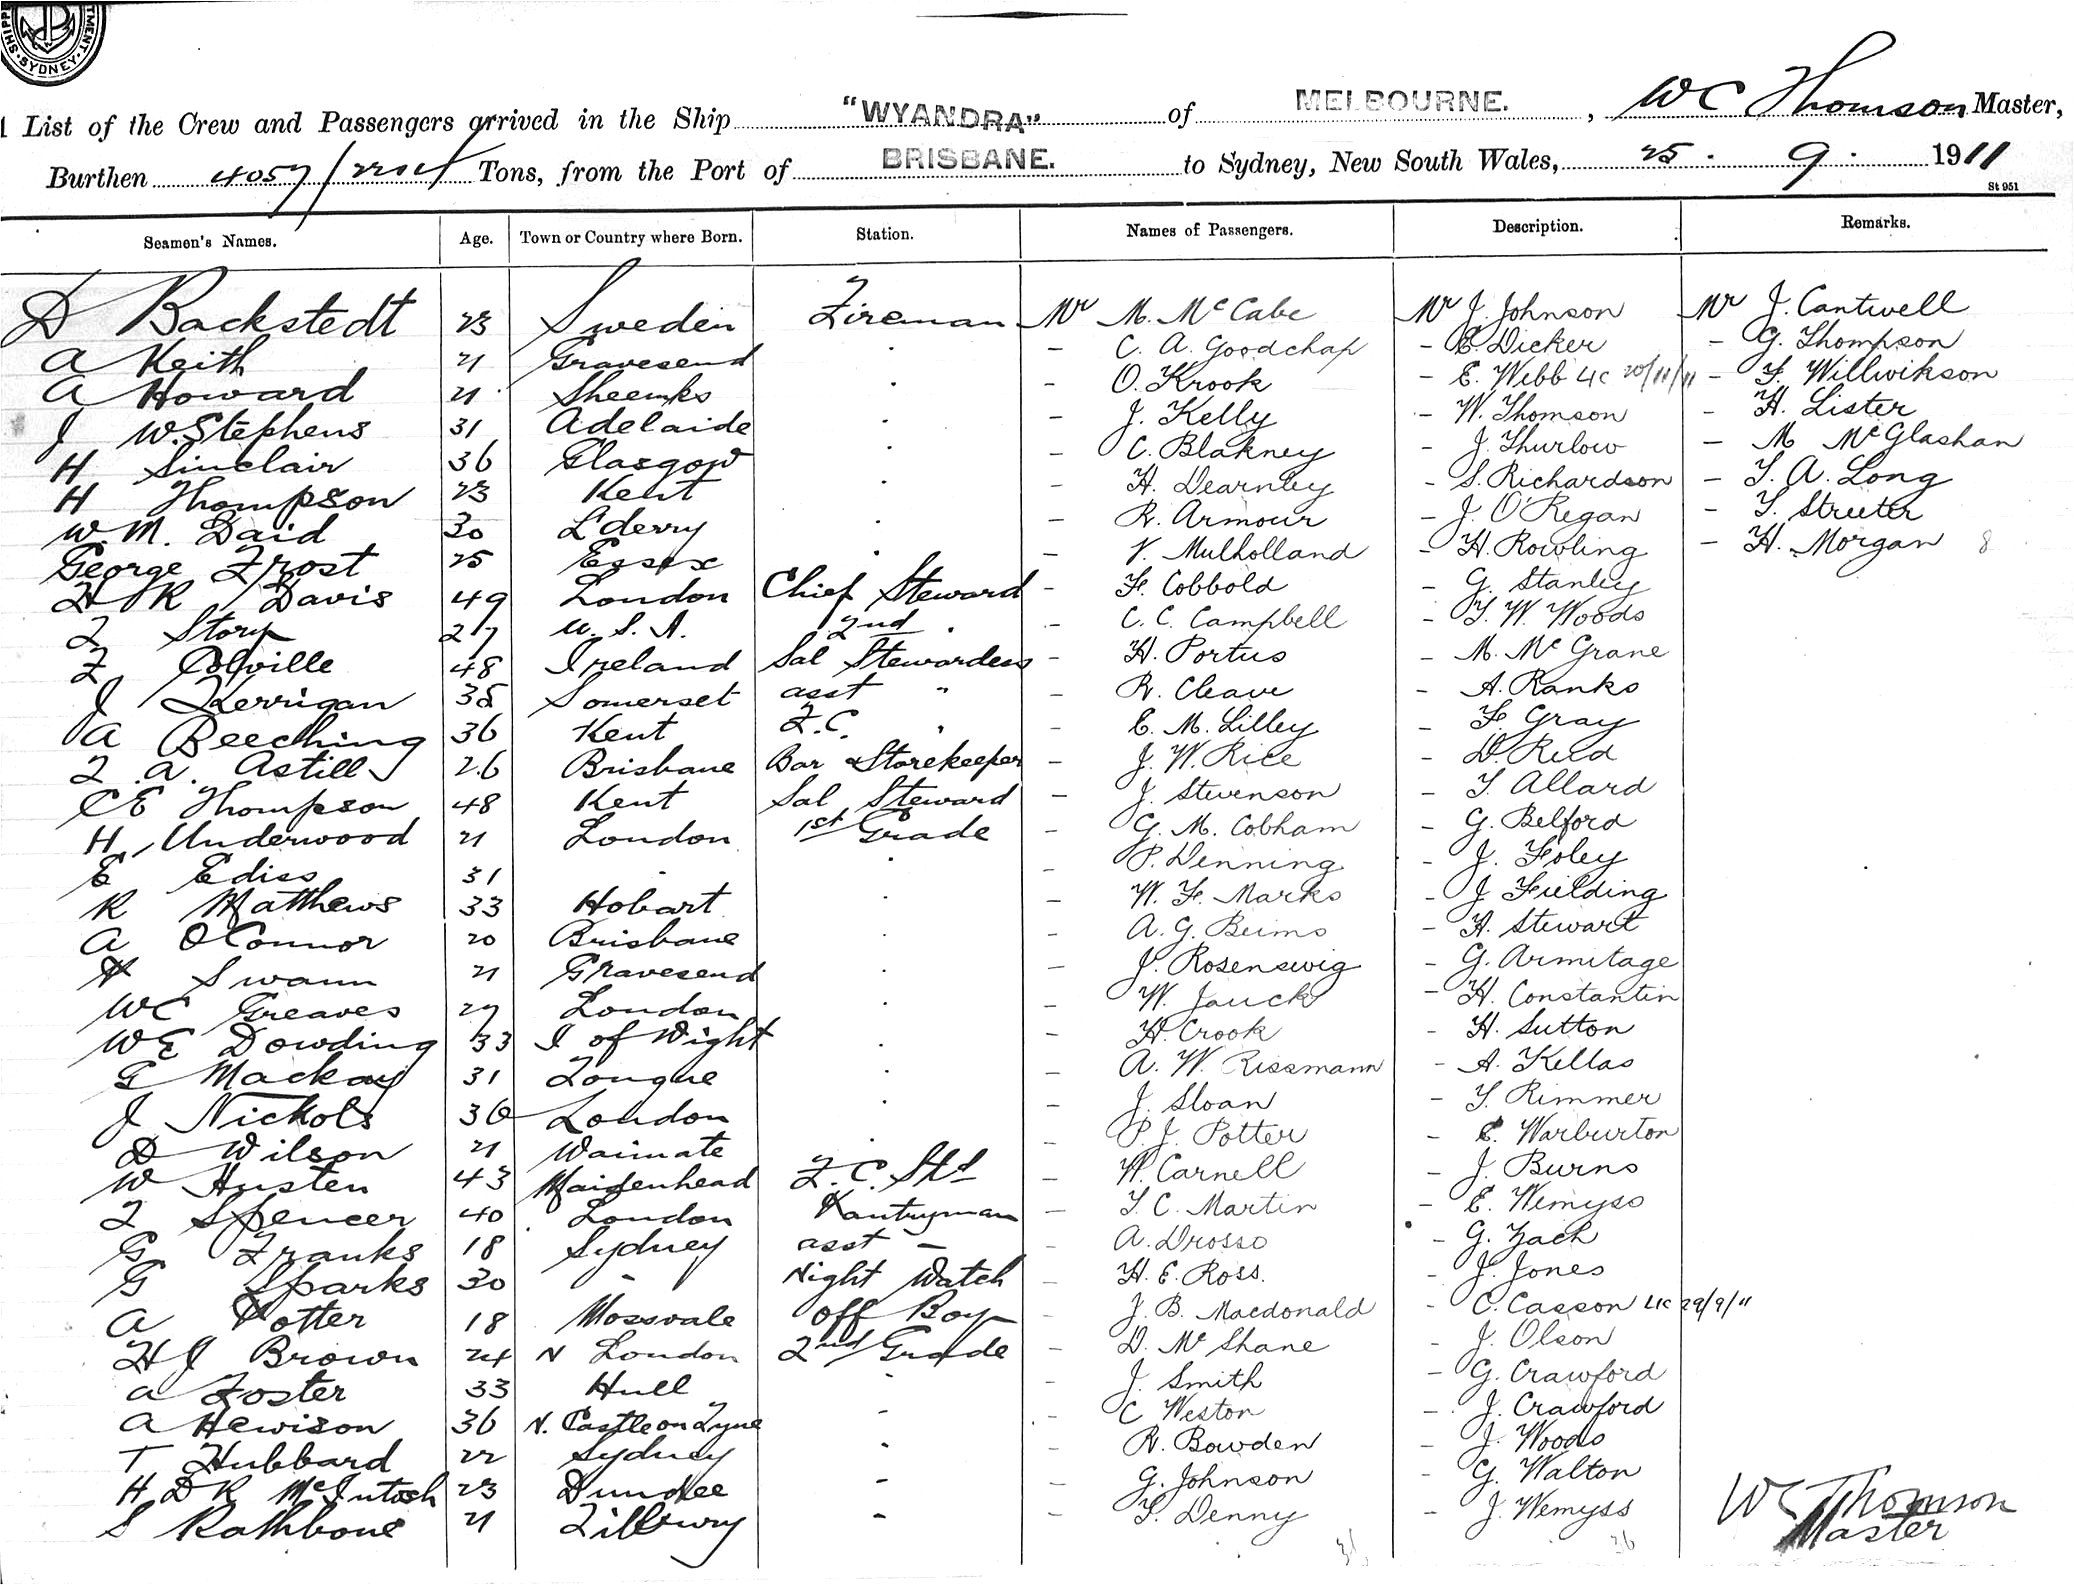 SHIPPI
TMENT
SYDNEY
List of the Crew and Passengers arrived in the Ship "WYANDRA" of MELBOURNE., WC Thomson Master,
Burthen 4057/ Tons, from the Port of BRISBANE. to Sydney, New South Wales, 25. 9. 1911
St 951
Seamen's Names. Age. Town or Country where Born. Station. Names of Passengers. Description. Remarks.
D Backstedt 23 Sweden Fireman Mr M. McCabe Mr J. Johnson Mr J. Cantwell
A Keith 21 Gravesend " – C. A. Goodchap – E. Dicker – G. Thompson
A Howard 21 " – O. Krook – E. Webb LC 20/11/11 – F. Willwikson
J W. Stephens 31 Adelaide " – J. Kelly – W. Thomson – H. Lister
H Sinclair 36 Glasgow " – C. Blakney – J. Thurlow – M McGlashan
H Thompson 23 Kent " – H. Dearnley – S. Richardson – T. A. Long
W. M. Daid 30 L'derry " – R. Armour – J. O'Regan – T. Streeter
George Frost 25 Essex " – V. Mulholland – H. Rowling – H. Morgan 8
H R Davis 49 London Chief Steward – F. Cobbold – G. Stanley
F Story 27 U. S. A. 2nd " – C. C. Campbell – T. W. Woods
F Colville 48 Ireland Sal Stewardess – H. Portus – M. McGrane
J Kerrigan 35 Somerset asst " – R. Cleave – A. Ranks
A Beeching 36 Kent F.C. " – E. M. Lilley – F Gray
F. A. Astill 26 Brisbane Bar & Storekeeper – J. W. Rice – D. Reid
C E Thompson 48 Kent Sal Steward – J. Stevenson – T. Allard
H Underwood 21 London 1st Grade – G. M. Cobham – G. Belford
E Ediss 31 " " – P. Denning – J. Foley
R Matthews 33 Hobart " – W. F. Marks – J Fielding
A O'Connor 20 Brisbane " – A. G. Beims – H. Stewart
H Swann 21 Gravesend " – J. Rosenswig – G. Armitage
WC Greaves 27 London " – W. Jauck – H. Constantin
WE Dowding 33 I of Wight " – H. Crook – H. Sutton
G Mackay 31 Tongue " – A. W. Rissmann – A. Kellas
J Nickols 36 London " – J. Sloan – T. Rimmer
D Wilson 21 Waimate " – P. J. Potter – E. Warburton
W Husten 43 Maidenhead F. C. Std – W. Carnell – J. Burns
F Spencer 40 London Pantryman – T. C. Martin – E. Wemyss
G Franks 18 Sydney asst – – A. Drosso – G. Zach
G Sparks 30 " Night Watch – H. E. Ross. – J. Jones
A Potter 18 Mossvale Off Boy – J. B. Macdonald – C. Casson LC 29/9/11
H J Brown 24 N London 2nd Grade – D. McShane – J. Olson
A Foster 33 Hull " – J. Smith – G. Crawford
A Hewison 36 N. Castle on Tyne " – C Weston – J. Crawford
T Hubbard 22 Sydney " – R. Bowden – J. Woods
H D R McIntosh 23 Dundee " – G. Johnson – G. Walton
S Rathbone 21 Tilbury " – T. Denny – J. Wemyss
WC Thomson
Master
36